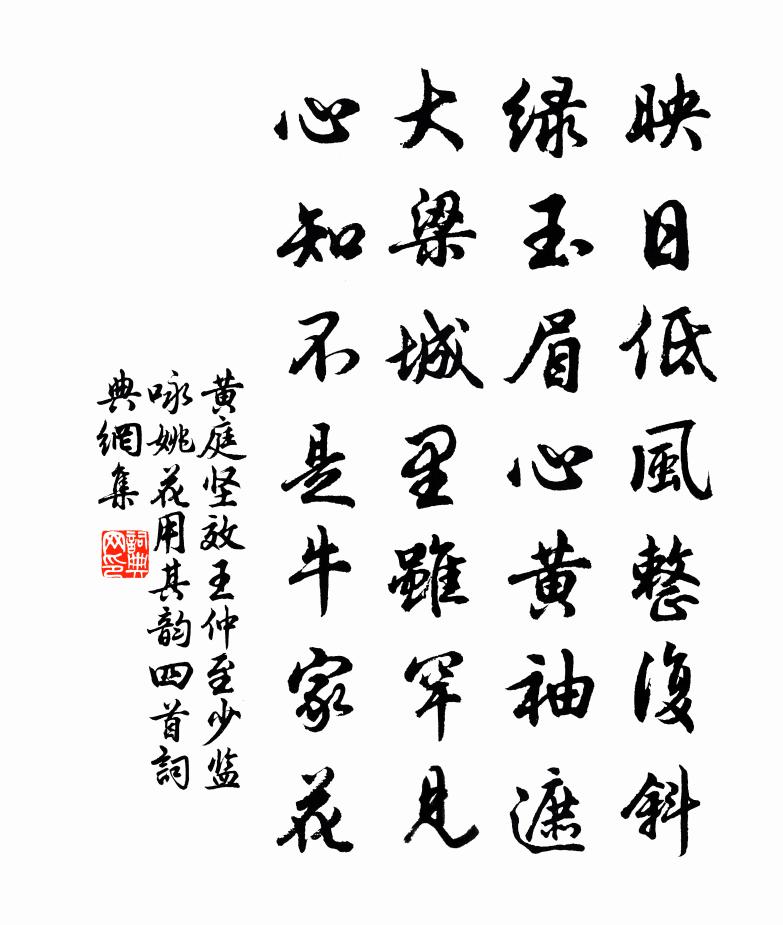 映日低風整復斜
緑玉眉心黄袖遮
大梁城里雖罕見
心知不是牛家花
黄庭坚效王仲至少监
咏姚花用其韵四首詞
典網集
詞典网印